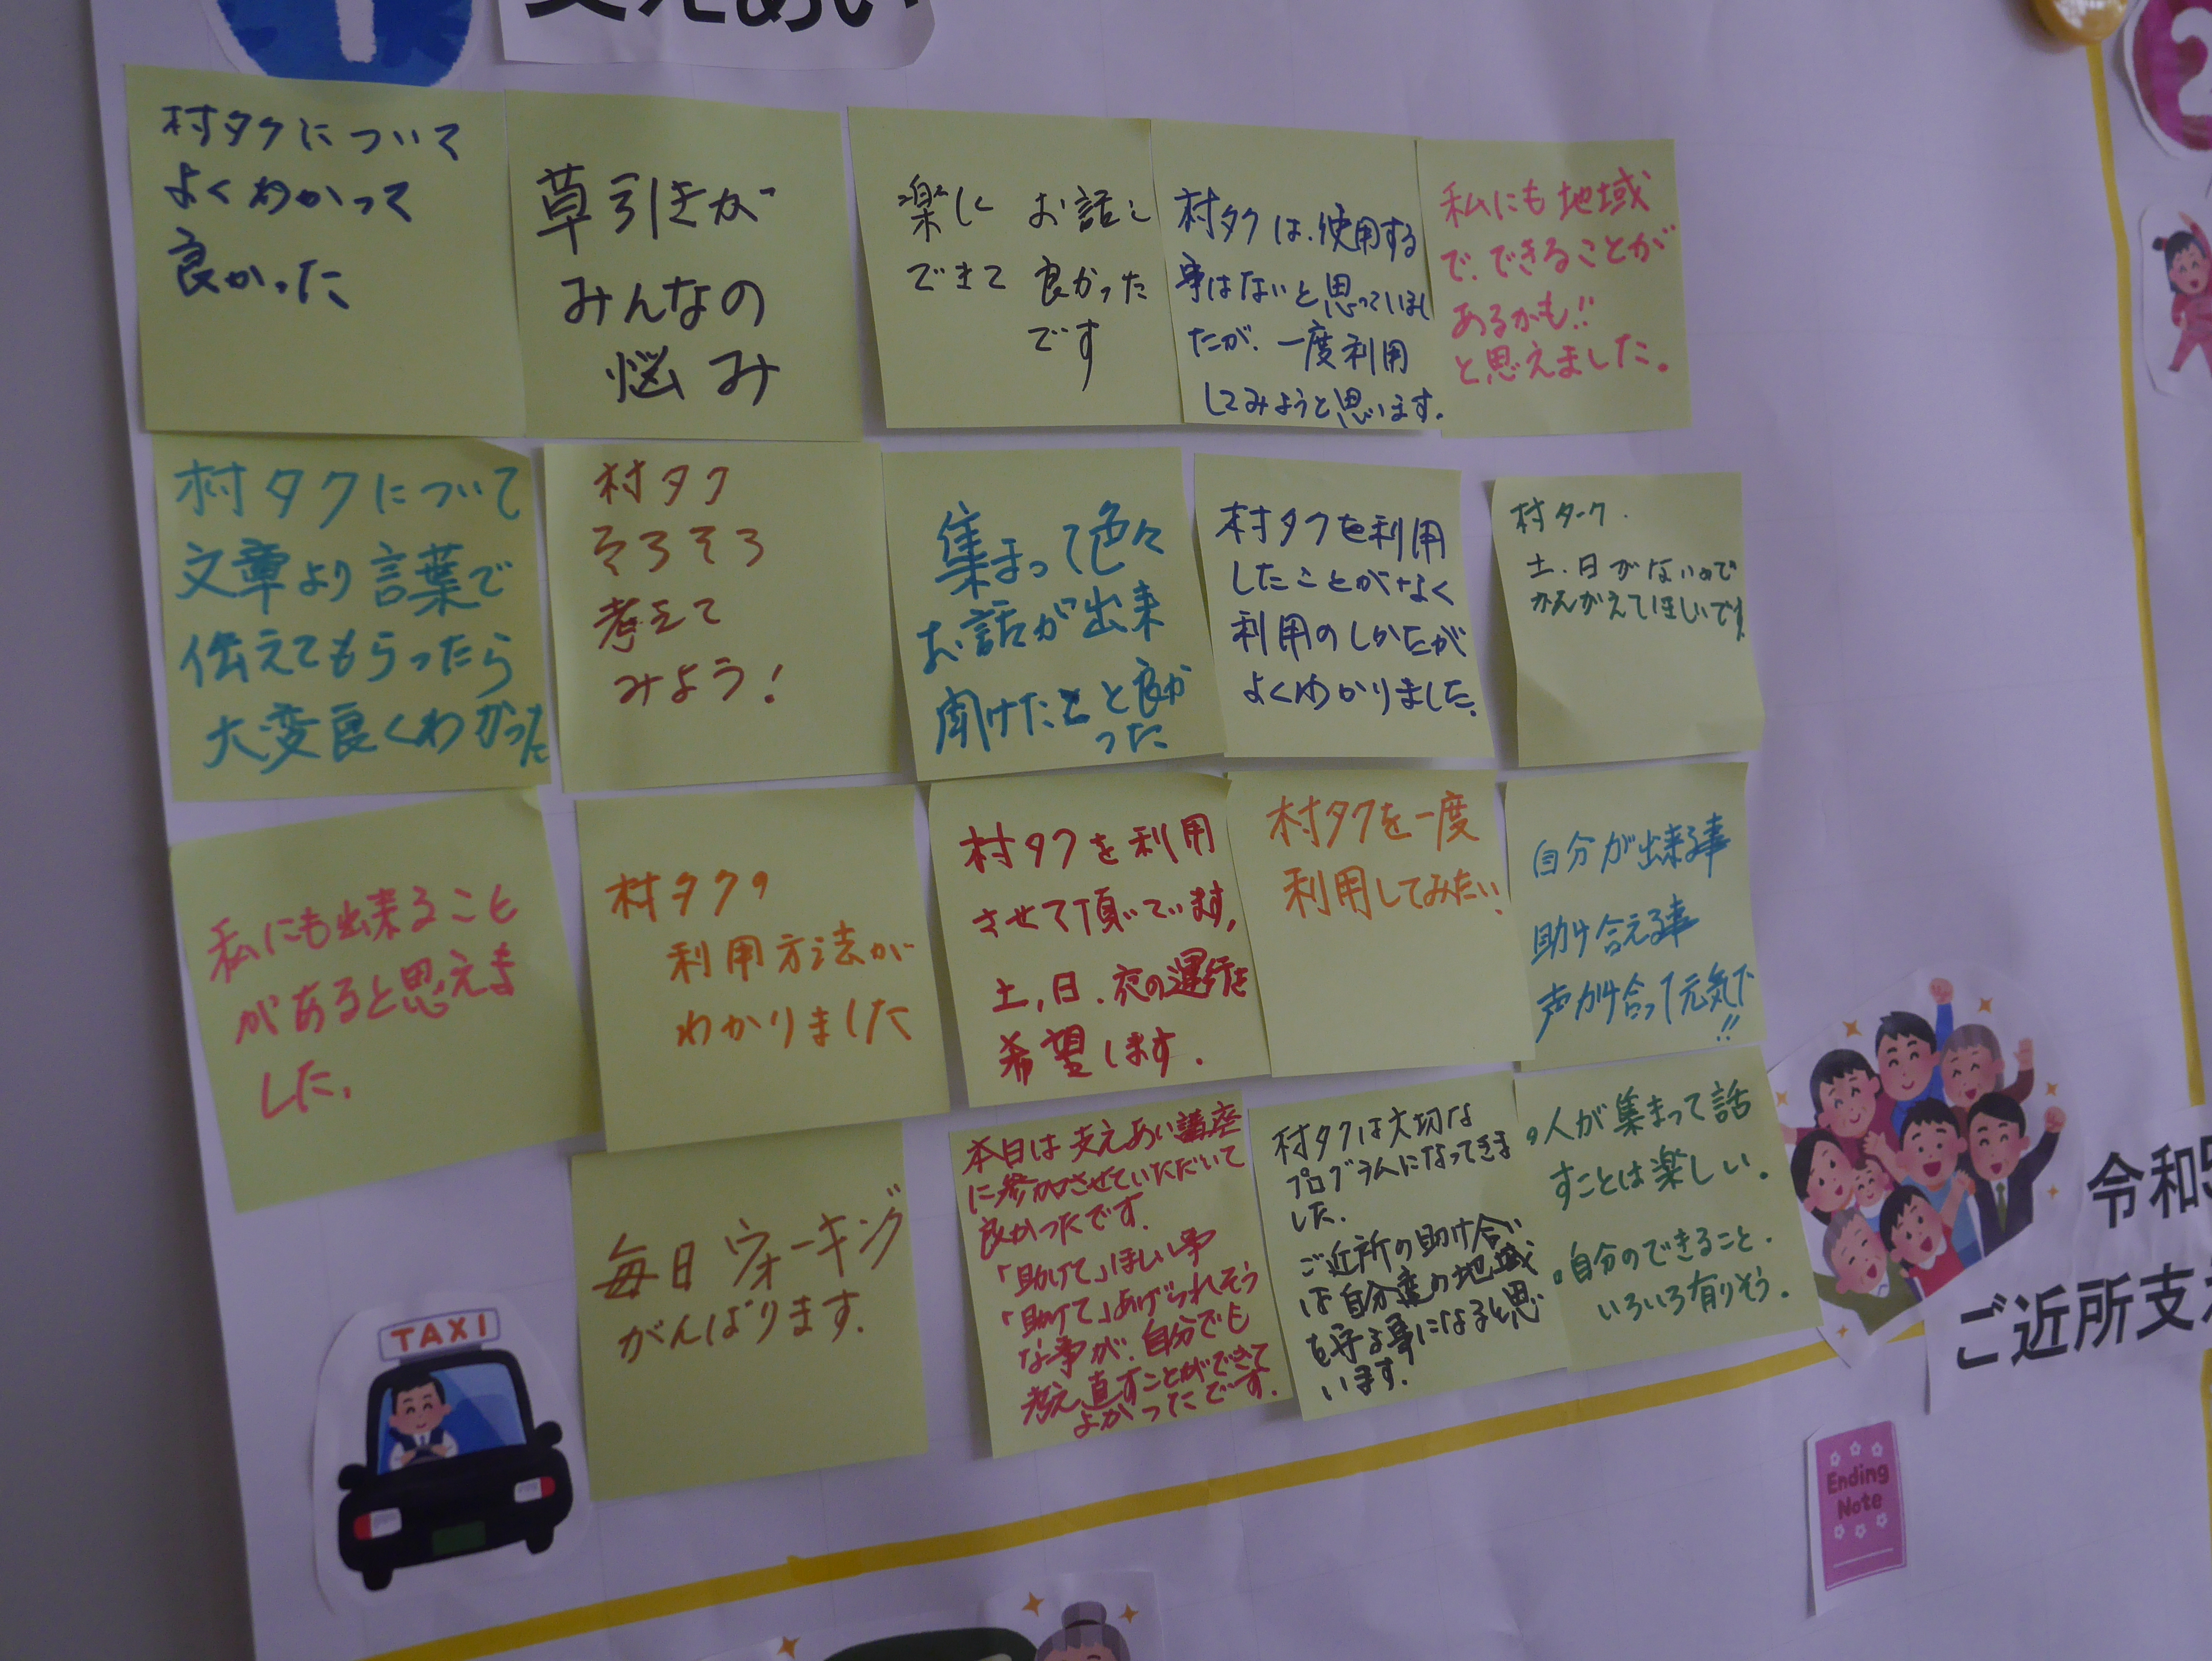 支えあい
村タクについて
よくわかって
良かった
草引きが
みんなの
悩み
楽しく お話し
できて 良かった
です
村タクは、使用する
事はないと思っていまし
たが、一度利用
してみようと思います。
私にも地域
で、できることが
あるかも!!
と思えました。
村タクについて
文章より言葉で
伝えてもらったら
大変良くわかった
村タク
そろそろ
考えて
みよう!
集まって色々
お話が出来
聞けたこと良か
った
村タクを利用
したことがなく
利用のしかたが
よくわかりました。
村ターク.
土、日がないので
かんがえてほしいです
私にも出来ること
があると思えま
した。
村タクの
利用方法が
わかりました
村タクを利用
させて頂いています。
土、日、夜の運行を
希望します。
村タクを一度
利用してみたい!
自分が出来る事
助け合える事
声かけ合って元気で
!!
毎日ウォーキング
がんばります。
本日は支えあい講座
に参加させていただいて
良かったです。
「助けて」ほしい事
「助けて」あげられそう
な事が、自分でも
考え直すことができて
よかったです。
村タクは大切な
プログラムになってきま
した。
ご近所の助け合い
は自分達の地域
を守る事になると思
います。
・人が集まって話
すことは楽しい。
・自分のできること.
いろいろ有りそう。
TAXI
令和5
ご近所支
Ending
Note
2